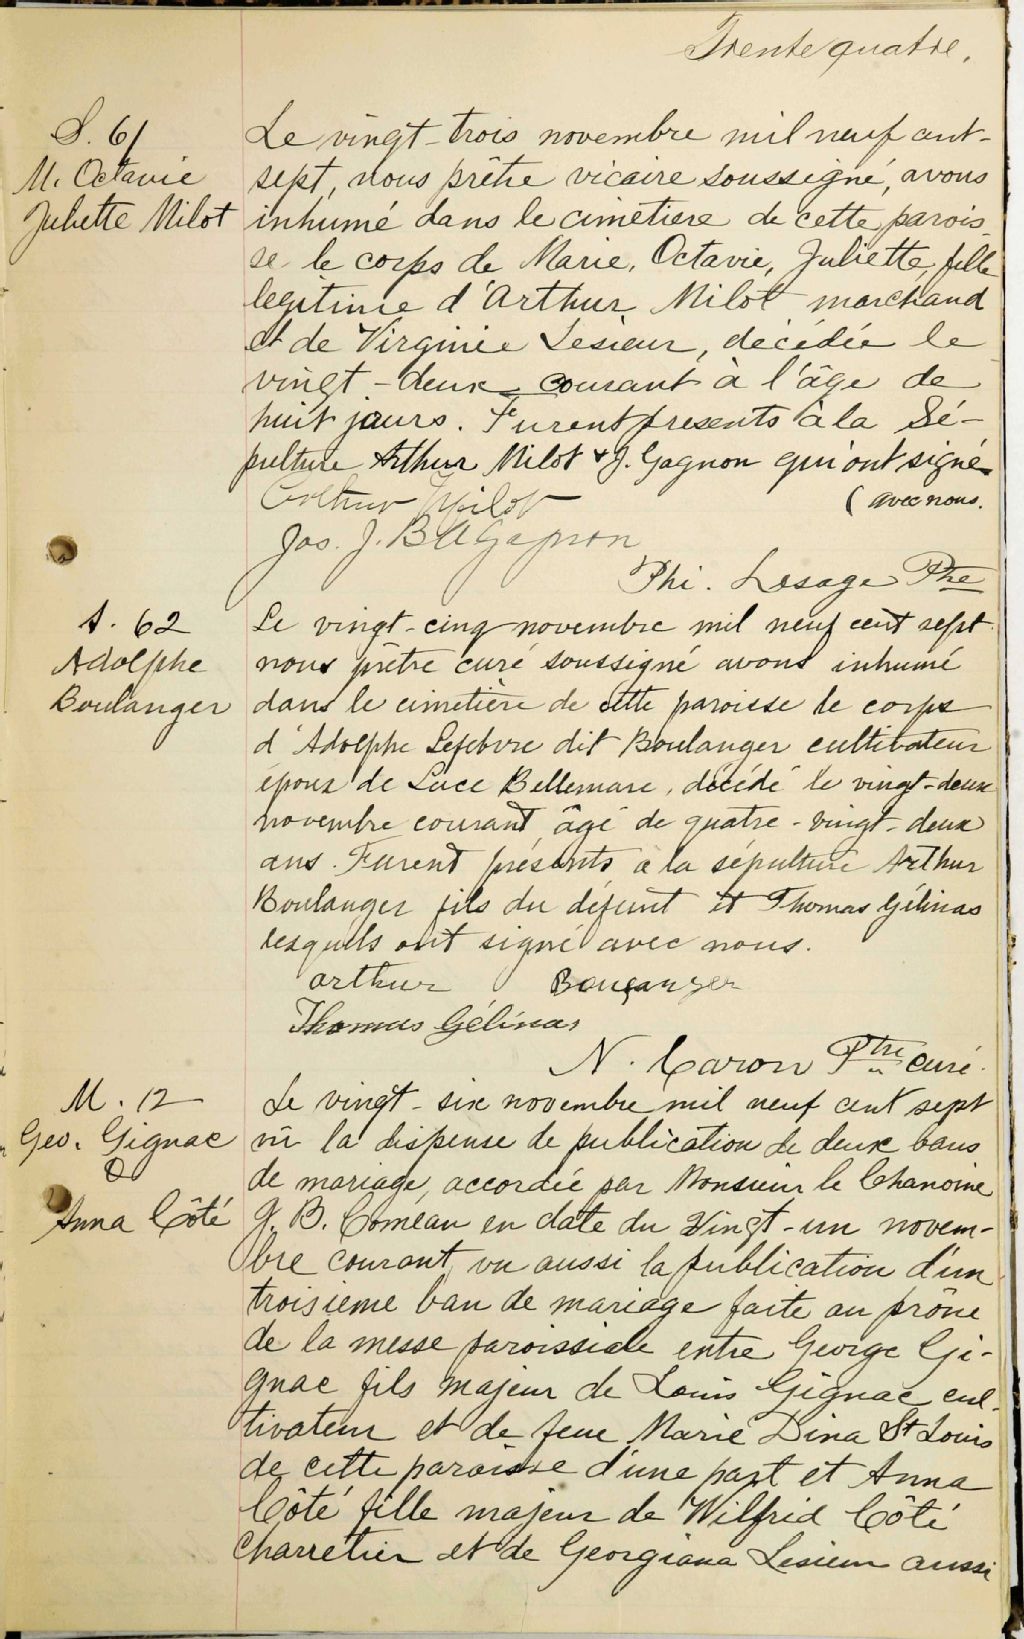 Trente quatre.
S. 61
M. Octavie
Juliette Milot
Le vingt-trois novembre mil neuf cent-
sept, nous prêtre vicaire soussigné, avons
inhumé dans le cimetière de cette parois-
se le corps de Marie, Octavie, Juliette, fille
légitime d'Arthur Milot marchand
et de Virginie Lesieur, décédée le
vingt-deux courant à l'âge de
huit jours. Furent présents à la Sé-
pulture Arthur Milot & J. Gagnon qui ont signé
(avec nous.
Arthur Milot
Jos. J. B A Gagnon
Phi. Lesage Ptre
S. 62
Adolphe
Boulanger
Le vingt-cinq novembre mil neuf cent sept
nous prêtre curé soussigné avons inhumé
dans le cimetière de cette paroisse le corps
d'Adolphe Lefebvre dit Boulanger cultivateur
époux de Luce Bellemare, décédé le vingt-deux
novembre courant âgé de quatre-vingt-deux
ans. Furent présents à la sépulture Arthur
Boulanger fils du défunt et Thomas Gélinas
lesquels ont signé avec nous.
arthur Boulanger
Thomas Gélinas
N. Caron Ptre curé.
M. 12
Geo. Gignac
&
Anna Côté
Le vingt-six novembre mil neuf cent sept
vû la dispense de publication de deux bans
de mariage, accordée par Monsieur le Chanoine
J. B. Comeau en date du Vingt-un novem-
bre courant, vu aussi la publication d'un
troisième ban de mariage faite au prône
de la messe paroissiale entre George Gi-
gnac fils majeur de Louis Gignac cul-
tivateur et de feue Marie Dina St Louis
de cette paroisse d'une part et Anna
Côté fille majeur de Wilfrid Côté
charretier et de Georgiana Lesieur aussi